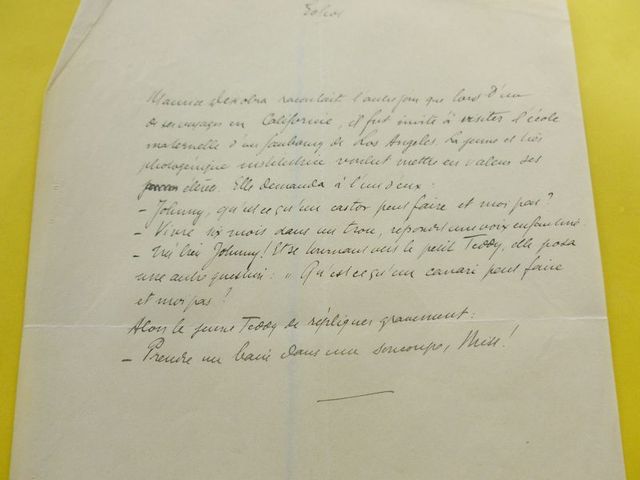 Echos
Maurice Dekobra racontait l'autre jour que lors d'un
de ses voyages en Californie, il fut invité à visiter l'école
maternelle d'un faubourg de Los Angeles. La jeune et très
photogénique institutrice voulut mettre en valeur ses
élèves. Elle demanda à l'un d'eux :
- Johnny, qu'est ce qu'un castor peut faire et moi pas ?
- Vivre six mois dans un trou, répondit une voix enfantine.
- Très bien Johnny ! Et se tournant vers le petit Teddy, elle posa
une autre question : " Qu'est ce qu'un canari peut faire
et moi pas ?
Alors le jeune Teddy de répliquer gravement :
- Prendre un bain dans une soucoupe, Miss !